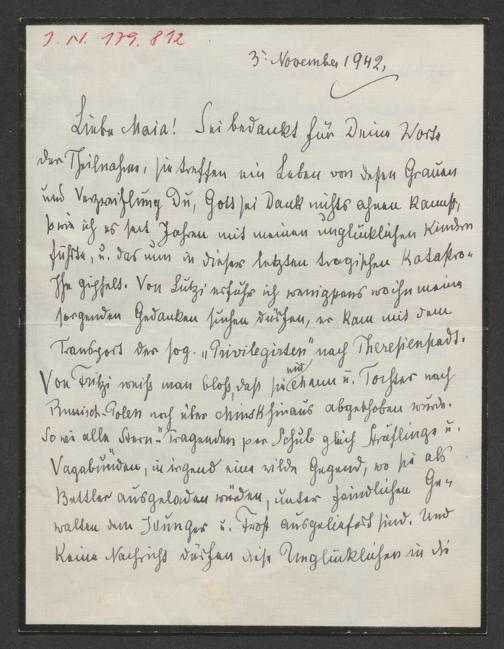 J. N. 179.812
3. November 1942.
Liebe Maia! Sei bedankt für Deine Worte
der Theilnahme, sie treffen ein Leben von dessen Grauen
und Verzweiflung Du, Gott sei Dank nichts ahnen kannst,
wie ich es seit Jahren mit meinen unglücklichen Kindern
führte, u. das nun in dieser letzten tragischen Katastro-
phe gipfelt. Von Lutzi erfuhr ich wenigstens wo ihn meine
sorgenden Gedanken suchen dürfen, er kam mit dem
Transport der sog. „Privilegirten" nach Theresienstadt.
Von Fritzi weiß man bloß, daß sie mit Mann u. Tochter nach
Russisch-Polen noch über Minsk hinaus abgeschoben wurde.
So wie alle Stern-Tragenden per Schub gleich Sträflinge u.
Vagabunden, in irgend eine wilde Gegend, wo sie als
Bettler ausgeladen werden, unter feindlichen Ge-
walten dem Hunger u. Frost ausgeliefert sind. Und
keine Nachricht dürfen diese Unglücklichen in die